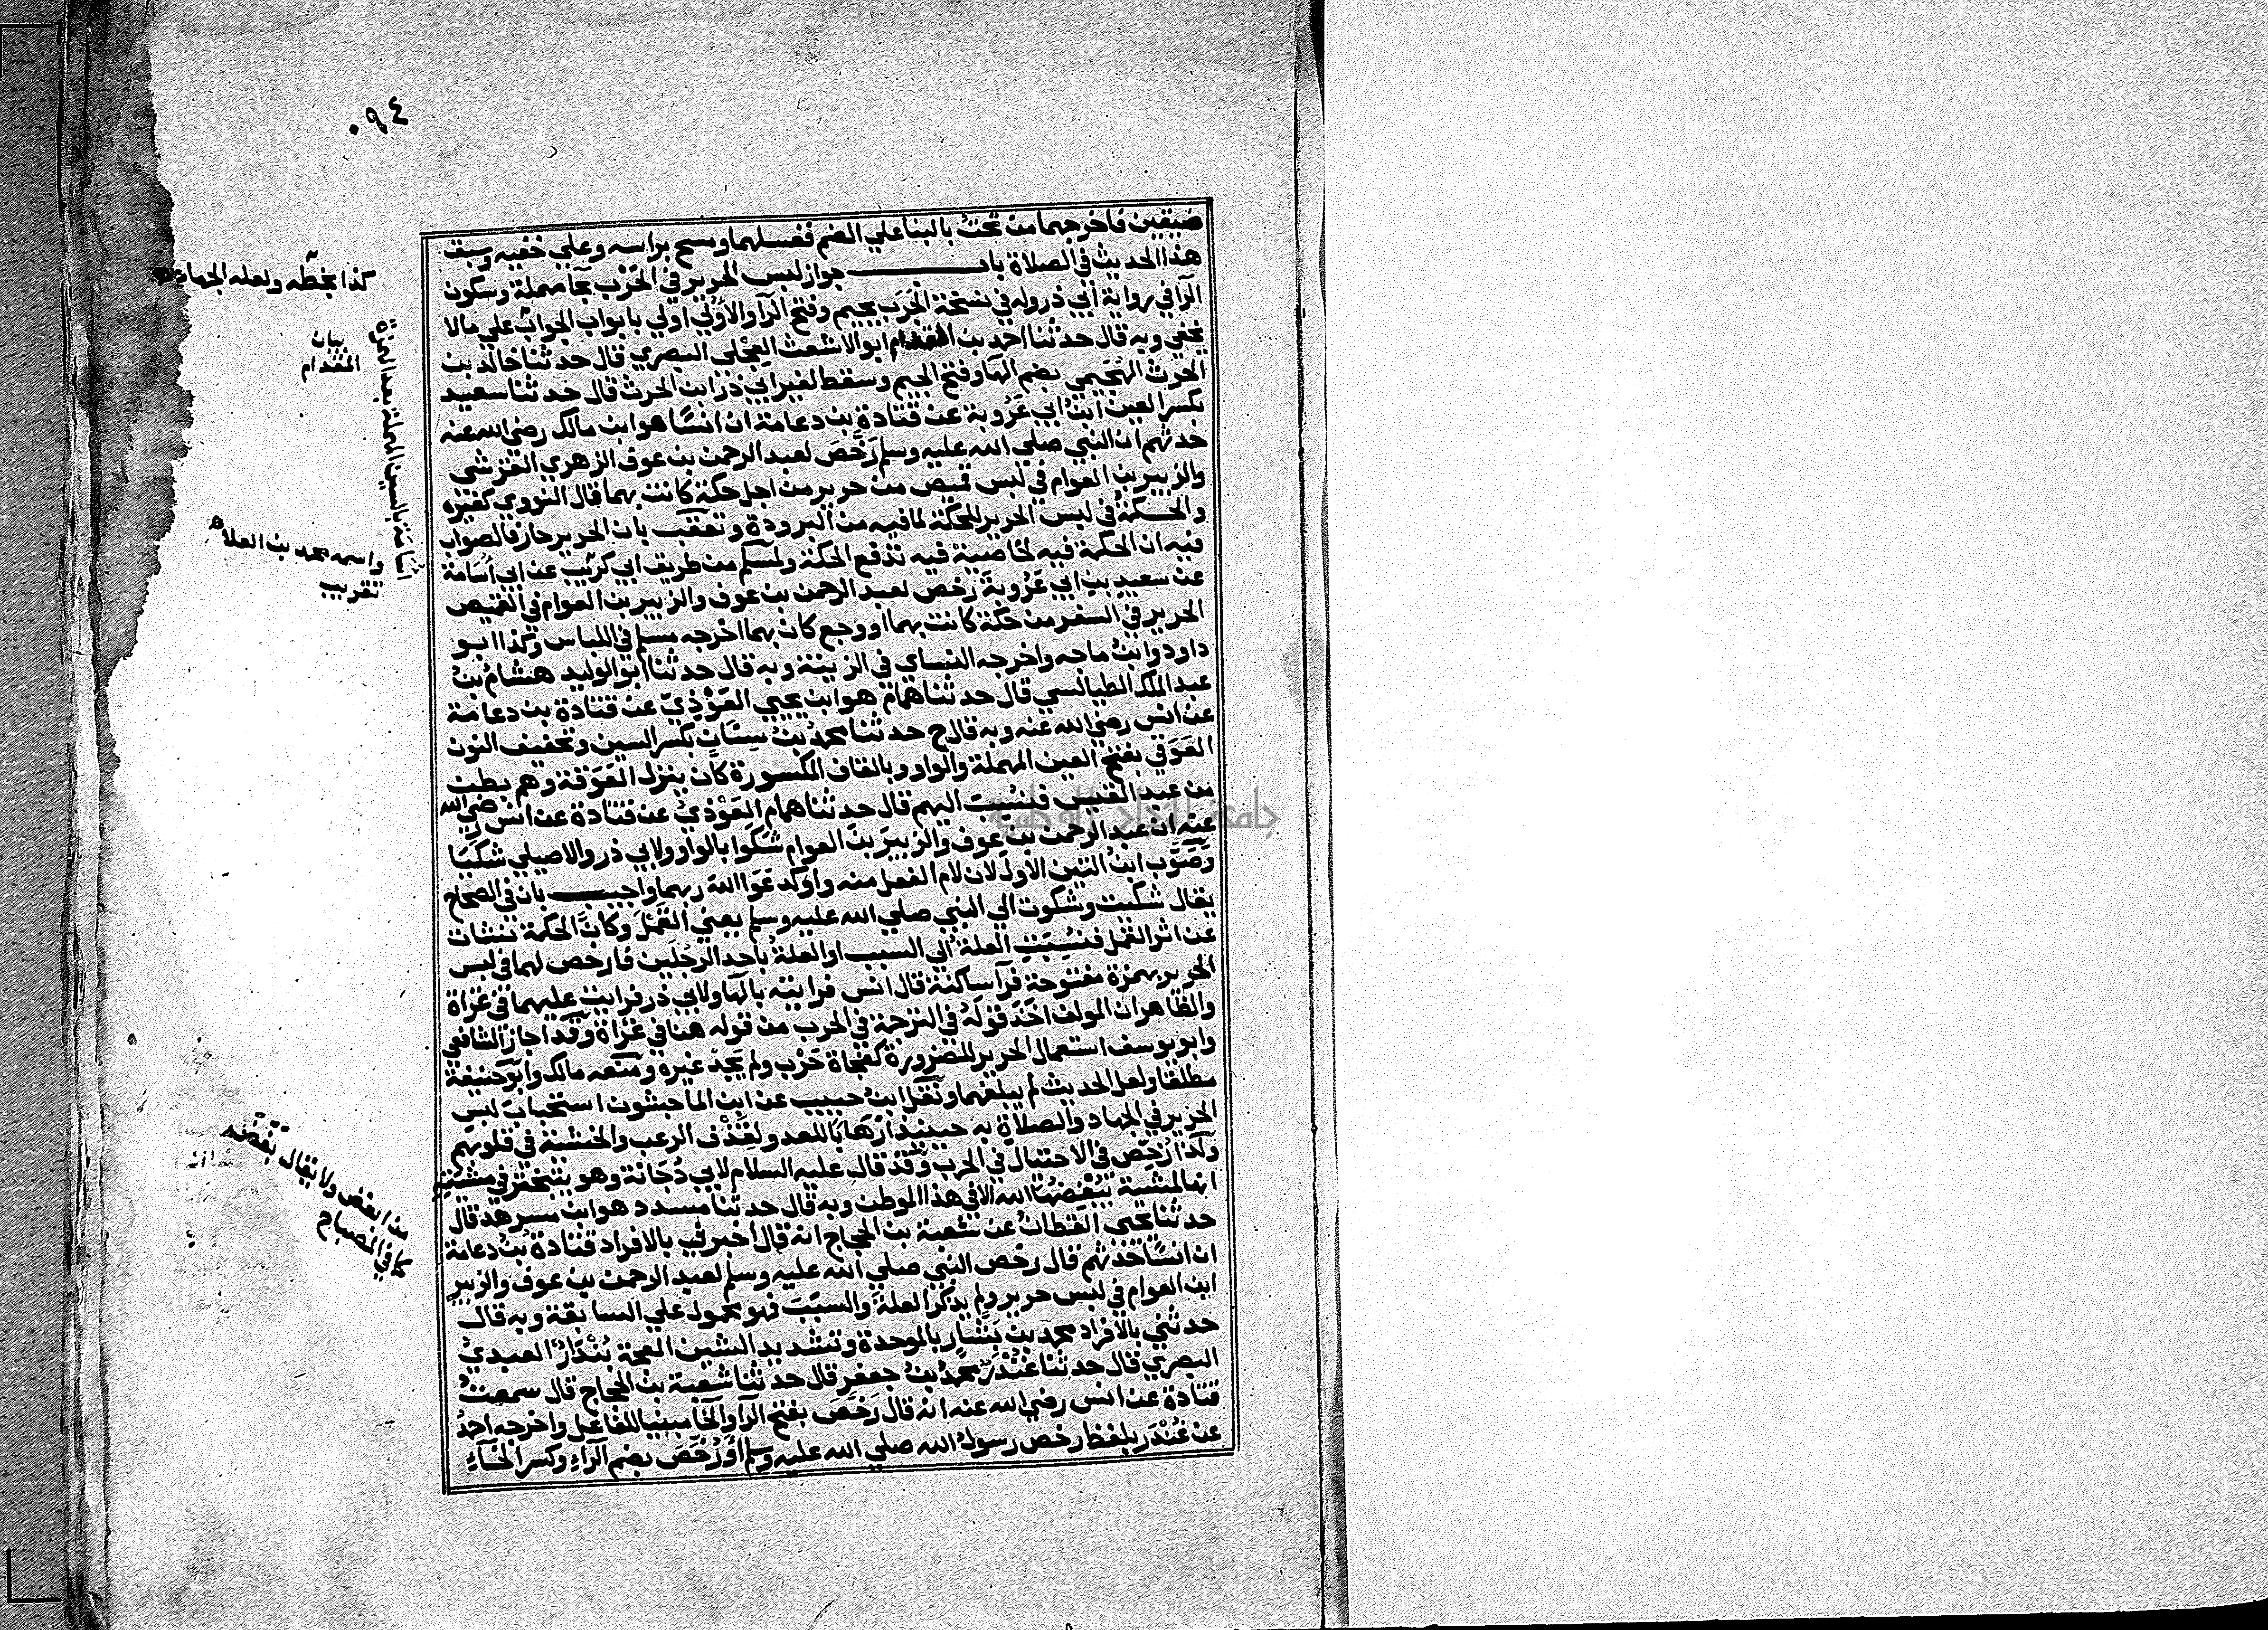 ٠٩٤
ضيقين فاخرجهما من تحت بالبنا علي الضم فغسلهما ومسح براسه وعلي خفيه وسبق
هذا الحديث في الصلاة باب جواز لبس الحرير في الحَرْب بحا مهملة وسكون
الرا في رواية ابي ذر وله في نسخة الجَرَب بجيم وفتح الرآ والأولي اولي بابواب الجواب علي مالا
يخفي وبه قال حدثنا احمد بن المقدام ابو الاشعث العِجْلي البصري قال حدثنا خالد بن
الحرث الهُجَيمي بضم الها وفتح الجيم وسقط لغير ابي ذر ابن الحرث قال حدثنا سعيد
بكسر العين ابنُ ابي عَرُوبة عن قتادة بن دعامة ان انسًا هو ابن مالك رضي الله عنه
حدثهم ان النبي صلي الله عليه وسلم رَخَّصَ لعبد الرحمن بن عوف الزهري القرشي
والزبير بن العوام في لبس قميص من حرير من اجل حكة كانت بهما قال النووي كغيره
والحكمة في لبس الحرير للحكة لما فيه من البرودة وتعقب بان الحرير حار فالصواب
فيه ان الحكمة فيه لخاصية فيه تدفع الحكة ولمسلم من طريق ابي كريب عن ابي أُسَامة
عن سعيد بن ابي عَرُوبَة رَخص لعبد الرحمن بن عوف والزبير بن العوام في القميص
الحرير في السفر من حكة كانت بهما او وجع كان بهما اخرجه مسلم في اللباس وكذا ابو
داود وابن ماجه واخرجه النساي في الزينة وبه قال حدثنا ابو الوليد هشام بنُ
عبد الملك الطيالسي قال حدثنا همام هو ابن يحيي العَوْذِيّ عن قتادة بن دعامة
عن انس رضي الله عنه وبه قال ح حدثنا محمد بنُ سِنَانٍ بكسر السين وتخفيف النون
العَوَقي بفتح العين المهملة والواو وبالقاف المكسورة كان ينزل العَوَقة وهم بطن
من عبد القيس فلنُسِبَ اليهم قال حدثنا همام العَوْذيُّ عن قتادة عن انس رضي الله
عنه ان عبد الرحمن بن عوف والزبيرَ بنَ العوام شكَوا بالواو ولابي ذر والاصيلي شكَيَا
وَصَوَّب ابنُ التين الاولَ لان لام الفعل منه واو كدعَوَا اللهَ ربهما واجيب بان في الصحاح
يقال شكيت وشكوت الي النبي صلي الله عليه وسلم يعني القَمْلَ وكانَّ الحكة تنشات
عن اثر القمل فنُسِبَتِ العلة الي السبب او العلةُ باحد الرجُلَين فارخص لهما في لبس
الحرير بهمزة مفتوحة فرآ ساكنة قال انس فرايته بالها ولابي ذر فرايت عليهما في غزاة
والظاهر ان المولف اخَذَ قوْلَهُ في الترجمة في الحرب من قوله هنا في غزاة وقد اجاز الشافعي
وابو يوسف استعمال الحرير للضرورة كفجاة حَرْب ولم يجد غيره ومَنَعَه مالك وابو حنيفة
مطلقا ولعل الحديث لم يبلغهما ونَقَل ابنُ حبيب عن ابن الماجشون استحبابَ لبس
الحرير في الجهاد والصلاة به حينيذ ارهابا للعدو ولقذف الرعب والخشية في قلوبهم
ولذا رُخِّص في الاختيال في الحرب وقد قال عليه السلام لابي دُجَانة وهو يتبختر في مشيته
انها لمشية يُبغضها الله الا في هذا الموطن وبه قال حدثنا مسدد هو ابن مسرهد قال
حدثنا يحيي القطانُ عن شعبة بن الحجاج انه قال اخبرني بالافراد قتادة بنُ دعامة
ان انسًا حدثهم قال رخص النبي صلي الله عليه وسلم لعبد الرحمن بن عوف والزبير
ابن العوام في لبس حرير ولم يذكر العلةَ والسبَبَ فهو محمول علي السابقة وبه قال
حدثني بالافراد محمد بن بَشَّارٍ بالموحدة وتشديد الشين المعجمة بُنْدَارُ العبديُّ
البصري قال حدثنا غُنْدَر محمدُ بنُ جعفر قال حدثنا شعبة بن الحجاج قال سمعتُ
قتادة عن انس رضي الله عنه انه قال رَخَّصَ بفتح الرآ والخا مبنيا للفاعل واخرجه احمدُ
عن غُنْدَر بلفظ رخص رسولُ الله صلي الله عليه وسلم اَوْرُخِّصَ بضم الرآءِ وكسر الخآءِ
كذا بخطّه ولعله الجهاد
بيان
المقدام
اسامة بالسين المهملة بعد الهمزة
واسمه محمد بن العلاء
تقريب
من ابغض ولا يقال بَغَضَه
كما في المصباح
جامعة النجاح الوطنية